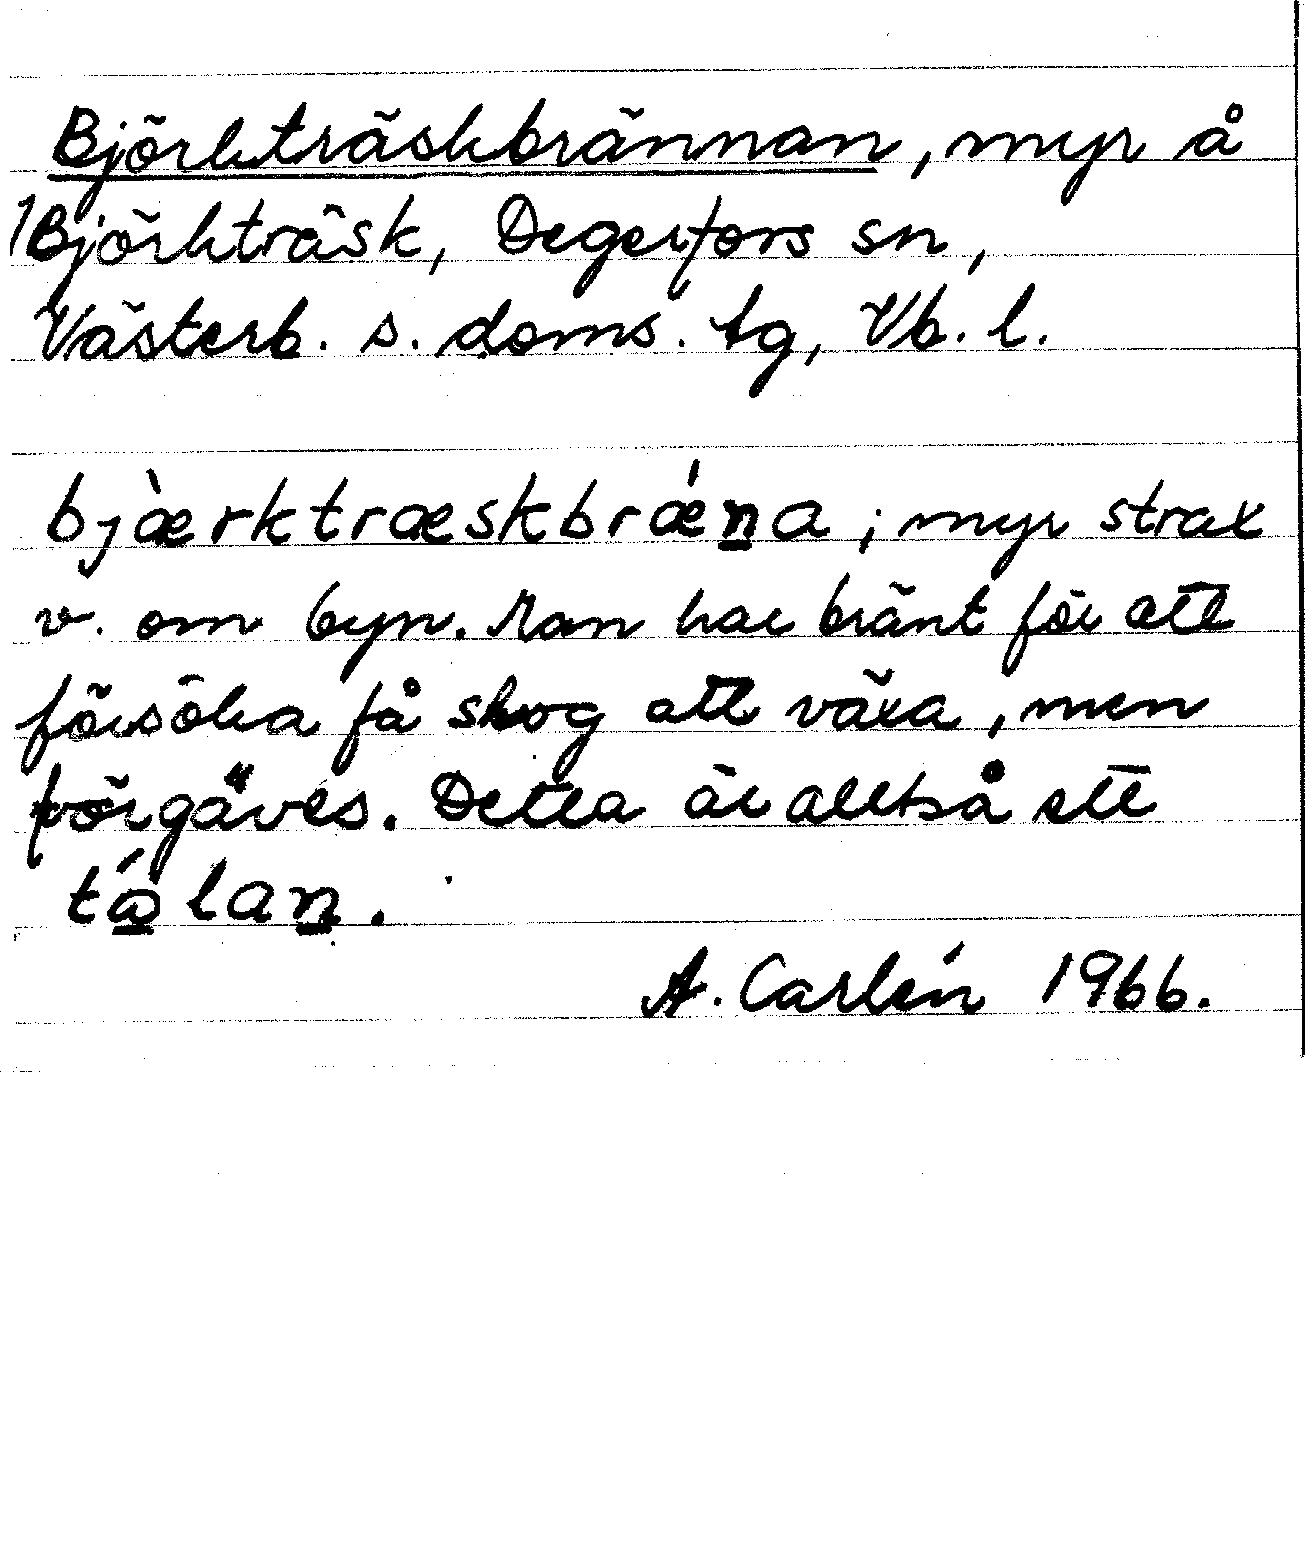 Björkträskbrännan, myr å
Björkträsk, Degerfors sn,
Västerb. s. doms. tg, Vb. l.
bjæ̀rktræskbrǽn̲a; myr strax
v. om byn. Man har bränt för att
försöka få skog att växa, men
förgäves. Detta är alltså ett
tá̲lan̲.
A. Carlén 1966.